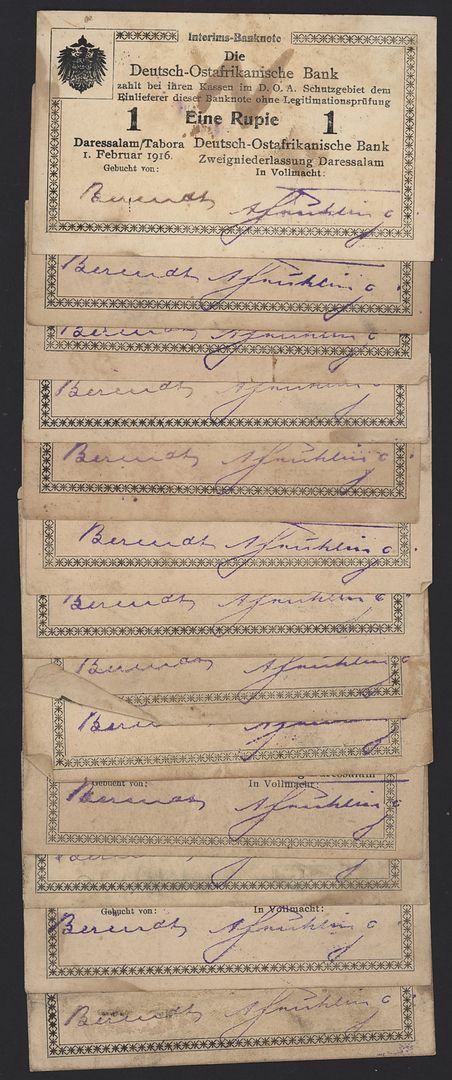 Interims-Banknote
Die
Deutsch-Ostafrikanische Bank
zahlt bei ihren Kassen im D. O. A. Schutzgebiet dem
Einlieferer dieser Banknote ohne Legitimationsprüfung
1 Eine Rupie 1
Daressalam/Tabora Deutsch-Ostafrikanische Bank
1. Februar 1916. Zweigniederlassung Daressalam
Gebucht von: In Vollmacht:
Berendt A Frühling
Berendt A Frühling
Berendt A Frühling
Berendt A Frühling
Berendt A Frühling
Berendt A Frühling
Berendt A Frühling
Berendt A Frühling
Berendt A Frühling
Gebucht von: In Vollmacht:
Berendt A Frühling
Berendt A Frühling
Gebucht von: In Vollmacht:
Berendt A Frühling
Berendt A Frühling